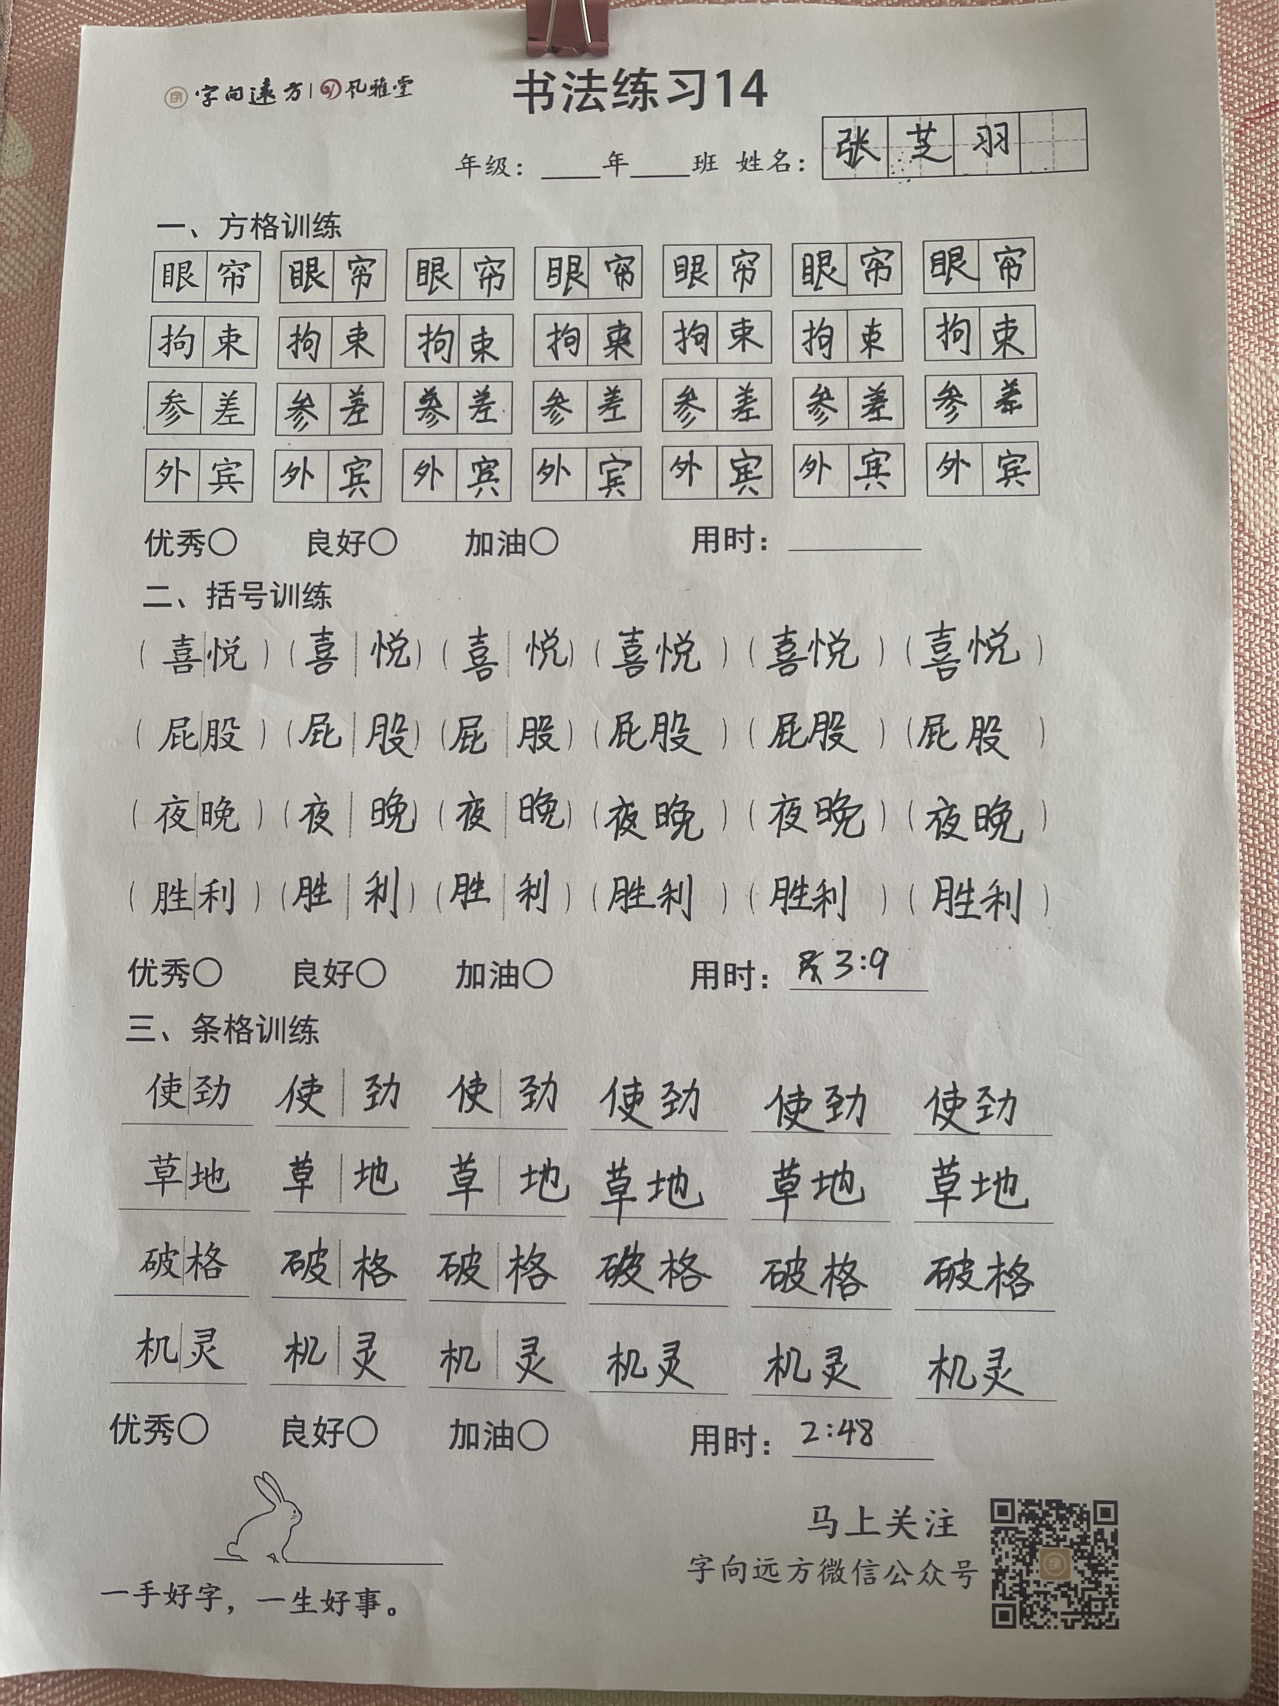 字向远方 | 风雅堂
书法练习14
年级：____年____班 姓名：张芝羽
一、方格训练
眼帘 眼帘 眼帘 眼帘 眼帘 眼帘 眼帘
拘束 拘束 拘束 拘束 拘束 拘束 拘束
参差 参差 参差 参差 参差 参差 参差
外宾 外宾 外宾 外宾 外宾 外宾 外宾
优秀○ 良好○ 加油○ 用时：________
二、括号训练
（喜|悦）（喜|悦）（喜|悦）（喜悦）（喜悦）（喜悦）
（屁|股）（屁|股）（屁|股）（屁股）（屁股）（屁股）
（夜|晚）（夜|晚）（夜|晚）（夜晚）（夜晚）（夜晚）
（胜|利）（胜|利）（胜|利）（胜利）（胜利）（胜利）
优秀○ 良好○ 加油○ 用时：3:9
三、条格训练
使|劲 使|劲 使|劲 使劲 使劲 使劲
草|地 草|地 草|地 草地 草地 草地
破|格 破|格 破|格 破格 破格 破格
机|灵 机|灵 机|灵 机灵 机灵 机灵
优秀○ 良好○ 加油○ 用时：2:48
马上关注
字向远方微信公众号
一手好字，一生好事。